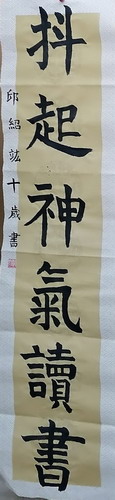 抖起神氣讀書
邱紹竑十歲書